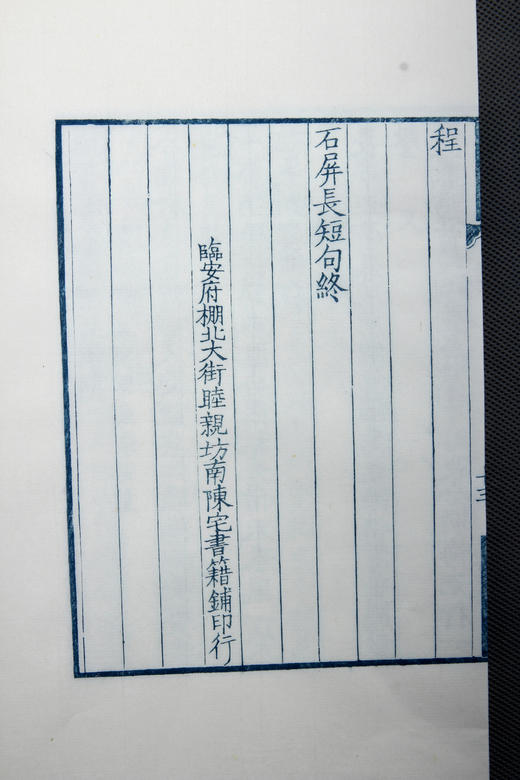 程
石屏長短句終
臨安府棚北大街睦親坊南陳宅書籍鋪印行